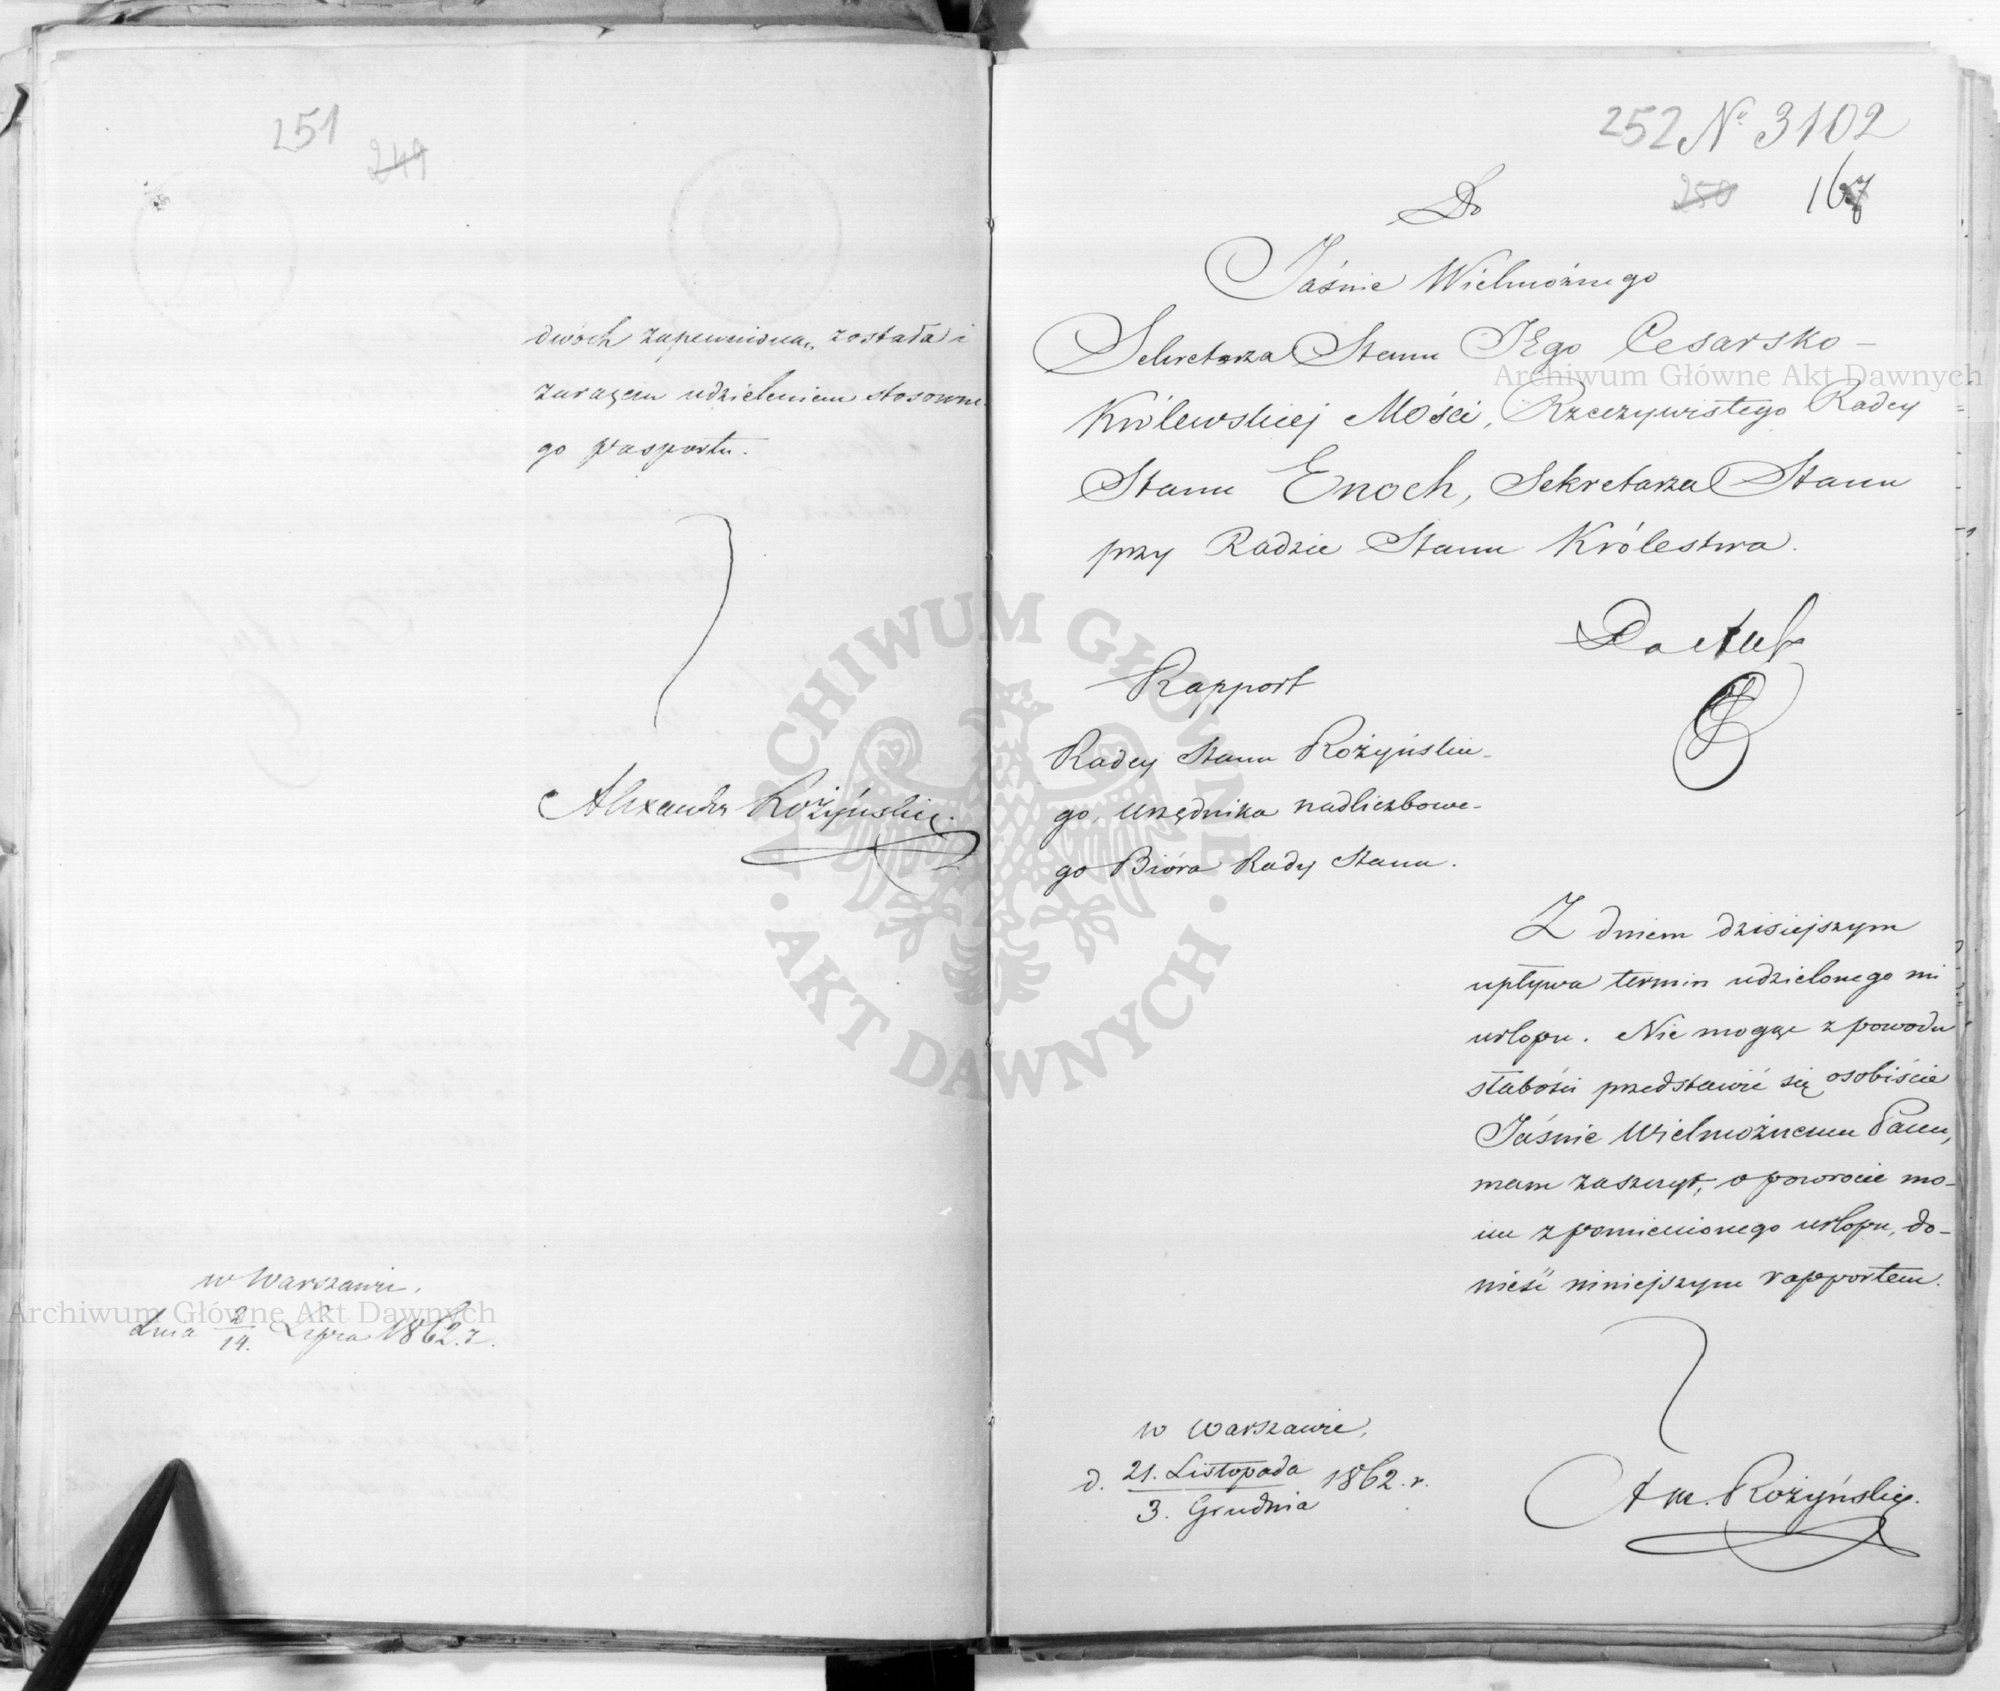 251
249
dwóch zapewnioną została i
zarazem udzieleniem stosowne-
go pasportu.
Alexander Rożyński.
w Warszawie,
dnia 2/14. Lipca 1862. r.
252 № 3102
250 167
Do
Jaśnie Wielmożnego
Sekretarza Stanu JEgo Cesarsko-
Królewskiej Mości, Rzeczywistego Radcy
Stanu Enoch, Sekretarza Stanu
przy Radzie Stanu Królestwa.
Do Akt
Rapport
Radcy Stanu Rożyńskie-
go, urzędnika nadliczbowe-
go Bióra Rady Stanu.
Z dniem dzisiejszym
upływa termin udzielonego mi
urlopu. Nie mogąc z powodu
słabości przedstawić się osobiście
Jaśnie Wielmożnemu Panu,
mam zaszczyt, o powrocie mo-
im z pomienionego urlopu, do-
nieść niniejszym rapportem.
w Warszawie,
d. 21. Listopada / 3. Grudnia 1862. r.
Alx. Rożyński.
ARCHIWUM GŁÓWNE AKT DAWNYCH
Archiwum Główne Akt Dawnych
Archiwum Główne Akt Dawnych